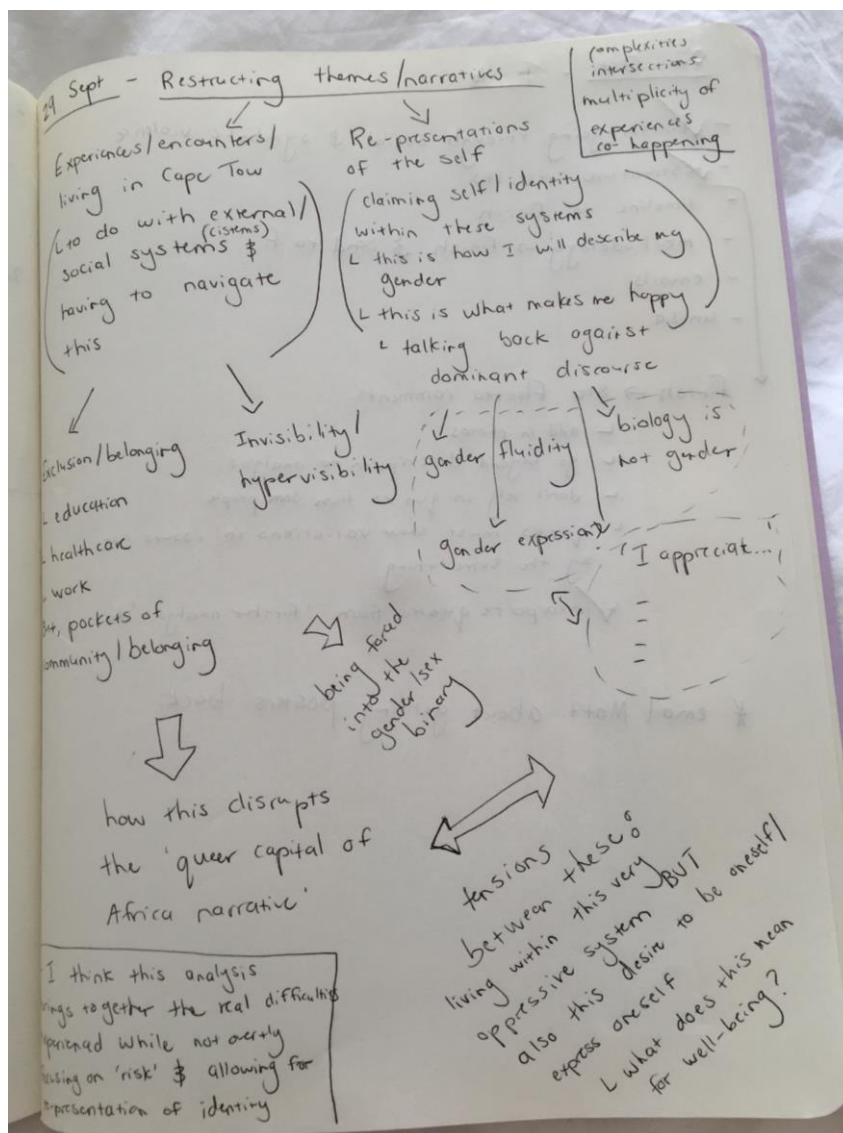 29 Sept - Restructing themes/narratives
complexities
intersections
multiplicity of
experiences
co-happening
Experiences/encounters/
living in Cape Tow
(to do with external/
(cistems)
social systems &
having to navigate
this)
Re-presentations
of the self
(claiming self/identity
within these systems
this is how I will describe my
gender
this is what makes me happy)
talking back against
dominant discourse
Exclusion/belonging
education
healthcare
work
pockets of
community/belonging
Invisibility/
hypervisibility
gender fluidity
gender expression
biology is
not gender
I appreciat...
-
-
-
-
being forced
into the
gender/sex
binary
how this disrupts
the 'queer capital of
Africa narrative'
tensions
between these:
living within this very
oppressive system BUT
also this desire to be oneself/
express oneself
what does this mean
for well-being?
I think this analysis
brings together the real difficulties
experienced while not overtly
focusing on 'risk' & allowing for
re-presentation of identity
* email Matt about poems back